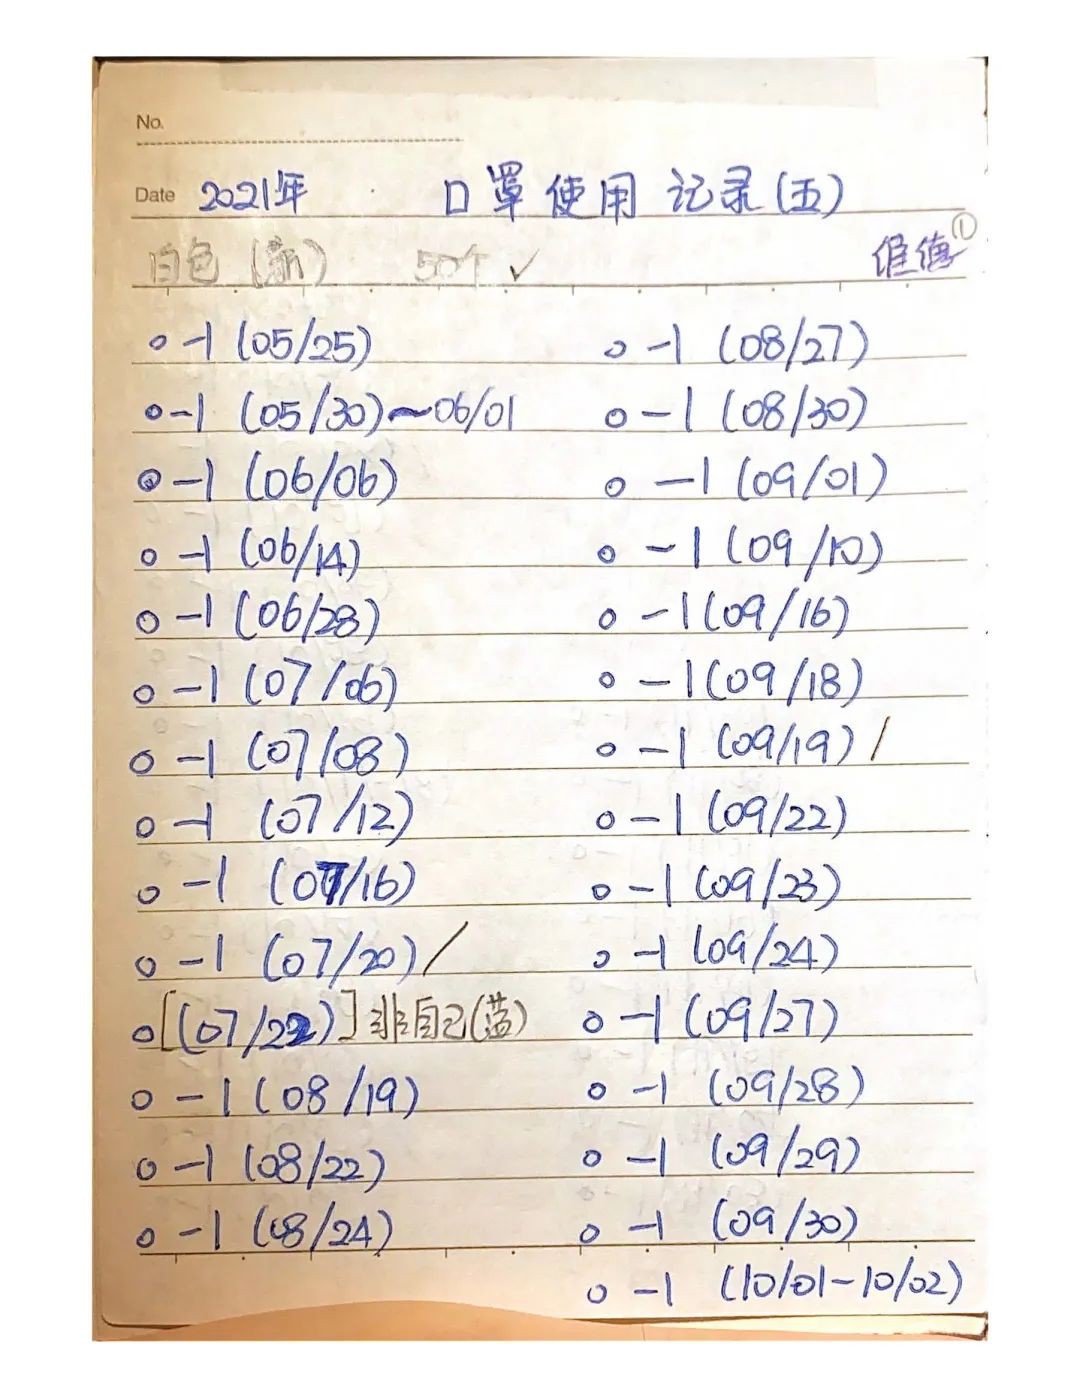 No.
Date 2021年 口罩使用记录(五)
白色(新) 50个 ✓ 维德 ①
o -1 (05/25)
o -1 (05/30)~06/01
o -1 (06/06)
o -1 (06/14)
o -1 (06/28)
o -1 (07/06)
o -1 (07/08)
o -1 (07/12)
o -1 (07/16)
o -1 (07/20) /
o [(07/22)] 非自己(蓝)
o -1 (08/19)
o -1 (08/22)
o -1 (08/24)
o -1 (08/27)
o -1 (08/30)
o -1 (09/01)
o -1 (09/10)
o -1 (09/16)
o -1 (09/18)
o -1 (09/19) /
o -1 (09/22)
o -1 (09/23)
o -1 (09/24)
o -1 (09/27)
o -1 (09/28)
o -1 (09/29)
o -1 (09/30)
o -1 (10/01-10/02)